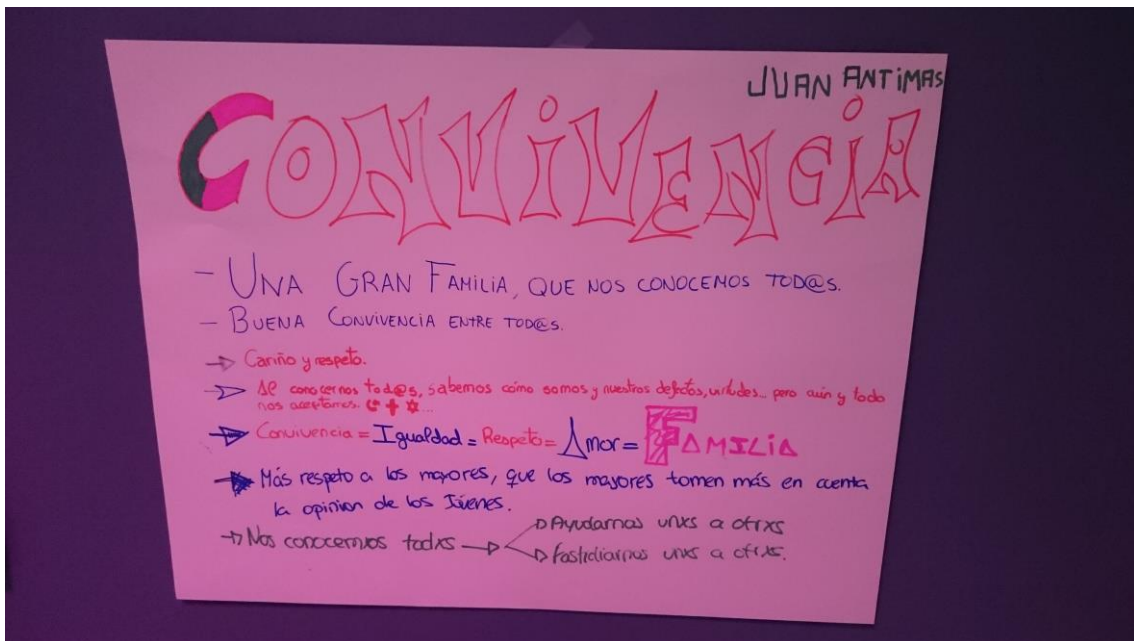 JUAN ANTIMAS
CONVIVENCIA
- UNA GRAN FAMILIA, QUE NOS CONOCEMOS TOD@S.
- BUENA CONVIVENCIA ENTRE TOD@S.
→ Cariño y respeto.
→ Al conocernos tod@s, sabemos cómo somos y nuestros defectos, virtudes... pero aún y todo
nos aceptamos. ☪ ✝ ✡...
→ Convivencia = Igualdad = Respeto = Amor = FAMILIA
→ Más respeto a los mayores, que los mayores tomen más en cuenta
la opinion de los Jóvenes.
→ Nos conocemos todxs → Ayudarnos unxs a otrxs
→ Fastidiarnos unxs a otrxs.